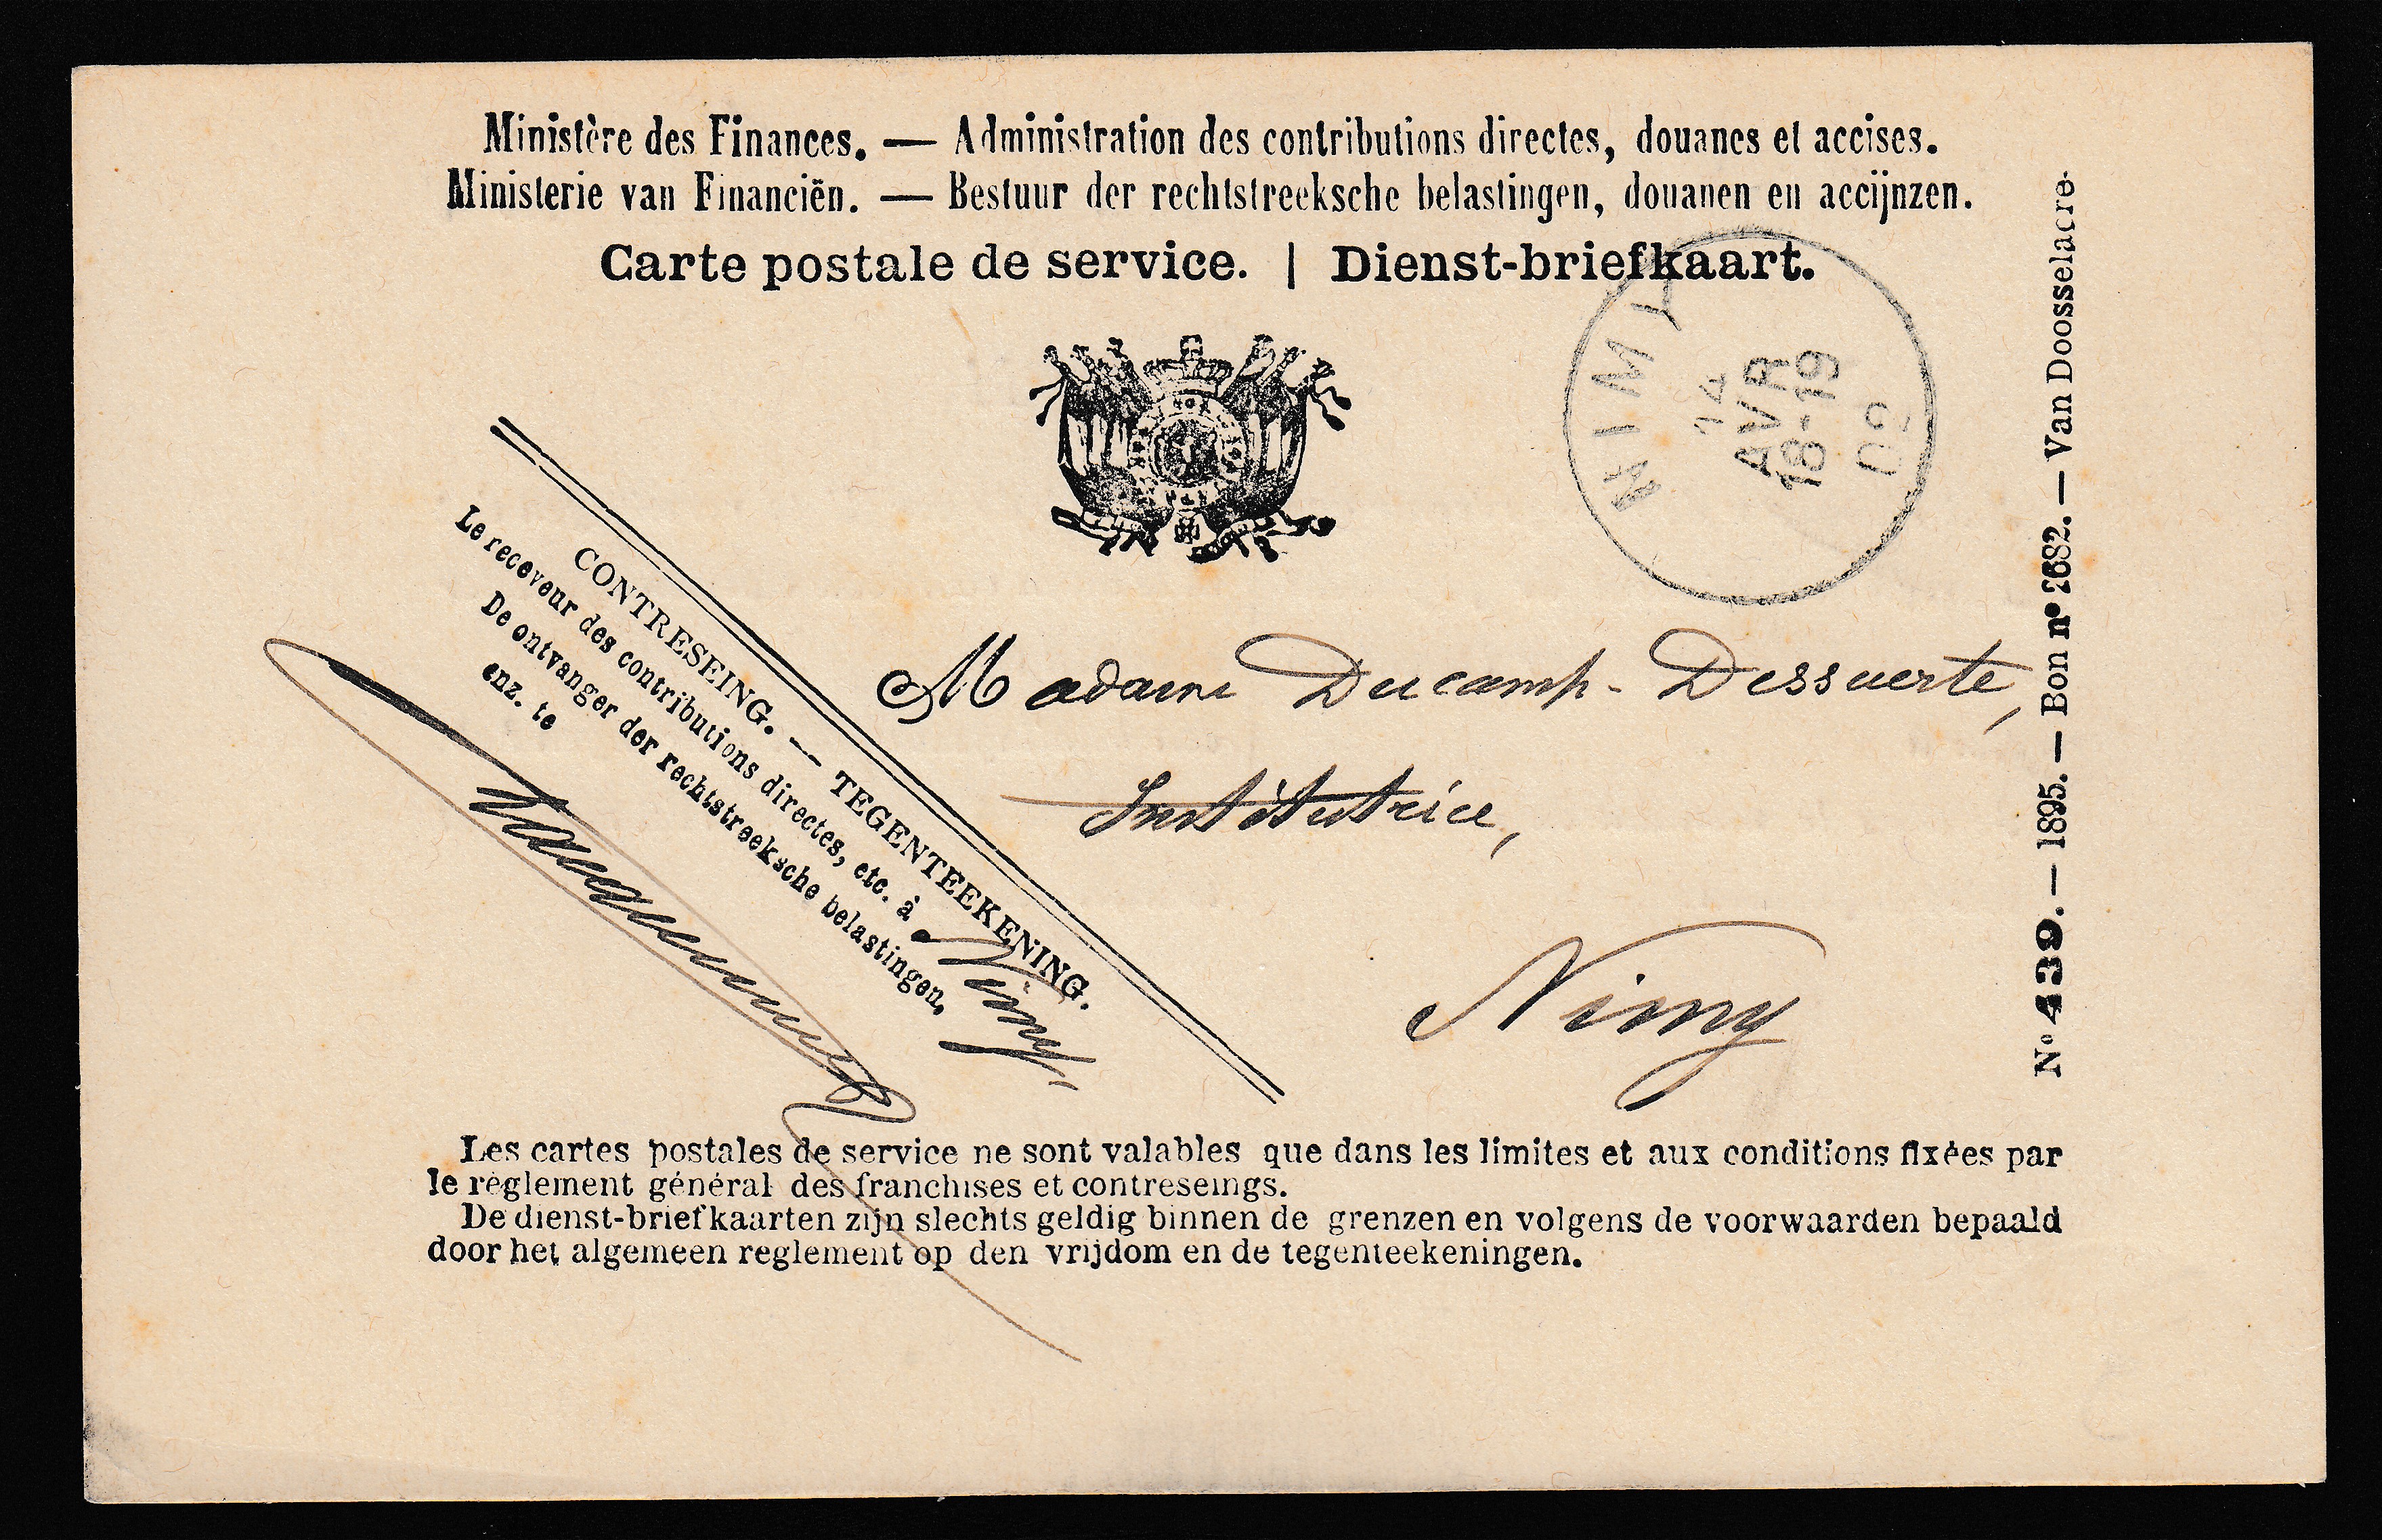 Ministère des Finances. — Administration des contributions directes, douanes et accises.
Ministerie van Financiën. — Bestuur der rechtstreeksche belastingen, douanen en accijnzen.
Carte postale de service. | Dienst-briefkaart.
NIMY
14
AVR
18-19
02
CONTRESEING. — TEGENTEEKENING.
Le receveur des contributions directes, etc. à Nimy
De ontvanger der rechtstreeksche belastingen,
enz. te
Madame Ducamp-Dessuerte,
Institutrice,
Nimy
Les cartes postales de service ne sont valables que dans les limites et aux conditions fixées par
le règlement général des franchises et contreseings.
De dienst-briefkaarten zijn slechts geldig binnen de grenzen en volgens de voorwaarden bepaald
door het algemeen reglement op den vrijdom en de tegenteekeningen.
No 439. — 1895. — Bon no 2682. — Van Doosselaere